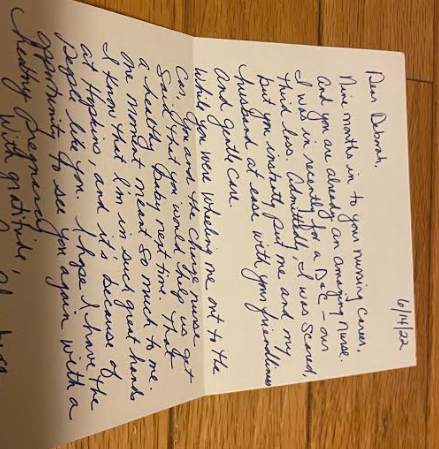 6/14/22
Dear Deborah,
Nine months in to your nursing career,
and you are already an amazing nurse.
I was in recently for a D+C - our
third loss. Admittedly, I was scared,
but you instantly put me and my
husband at ease with your friendliness
and gentle care.
While you were wheeling me out to the
car, you and the charge nurse
said that you would help us get
a healthy baby next time. That
one moment meant so much to me.
I know that I'm in such great hands
at Hopkins, and it's because of
people like you. I hope I have the
opportunity to see you again with a
healthy pregnancy
With gratitude,